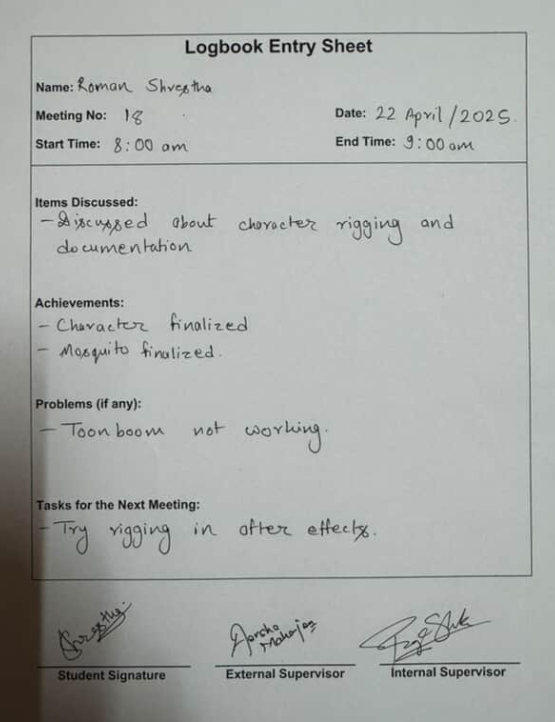 Logbook Entry Sheet
Name: Roman Shrestha
Meeting No: 18 Date: 22 April/2025.
Start Time: 8:00 am End Time: 9:00 am
Items Discussed:
- Discussed about character rigging and
documentation
Achievements:
- Character finalized
- Mosquito finalized.
Problems (if any):
- Toonboom not working.
Tasks for the Next Meeting:
- Try rigging in after effects.
Shrestha
Maharjan
Student Signature External Supervisor Internal Supervisor